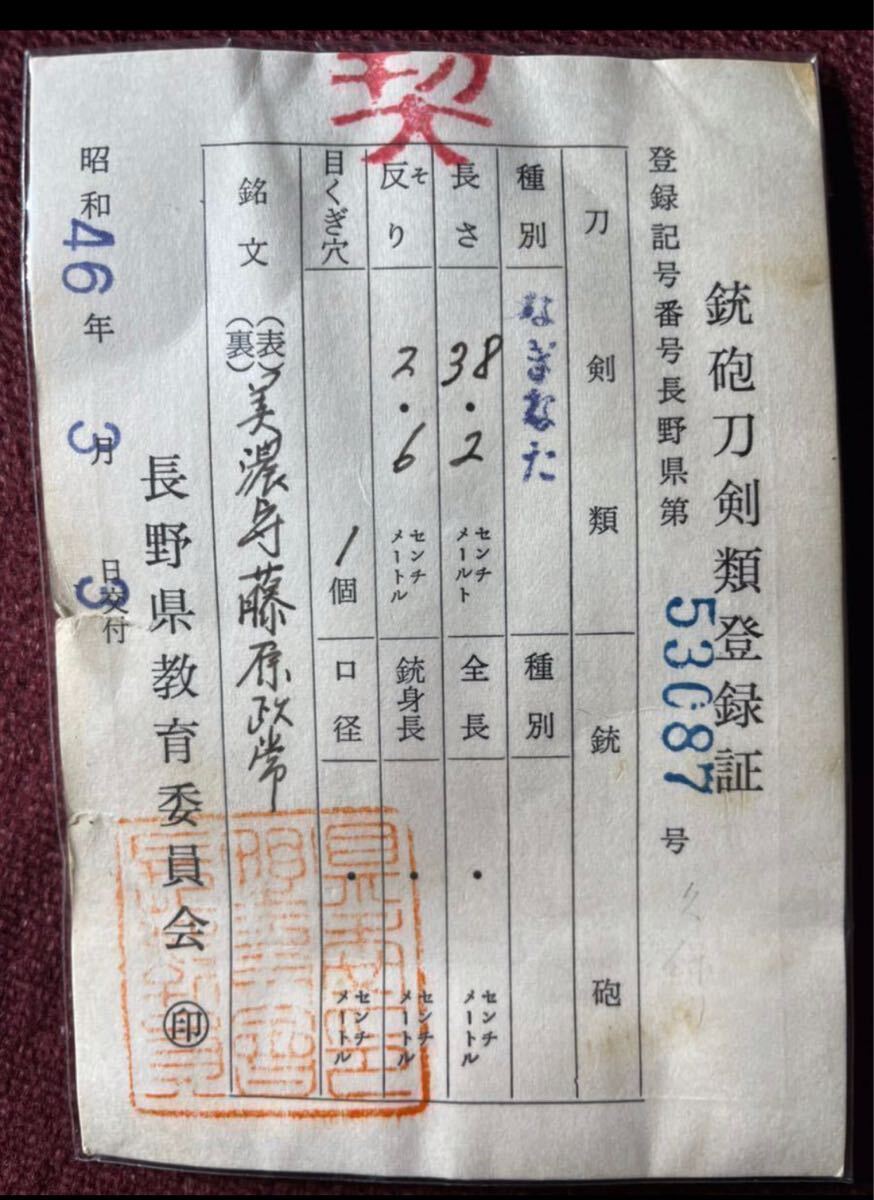 契
銃砲刀剣類登録証
登録記号番号長野県第53087号
刀剣類
銃砲
種別
なぎなた
種別
長さ
38.2センチメールト
全長
・センチメートル
反り
そ
2.6センチメートル
銃身長
・センチメートル
目くぎ穴
1個
口径
・センチメートル
銘文
(表)
(裏)
美濃守藤原政常
長野県教育委員会㊞
昭和46年3月3日交付